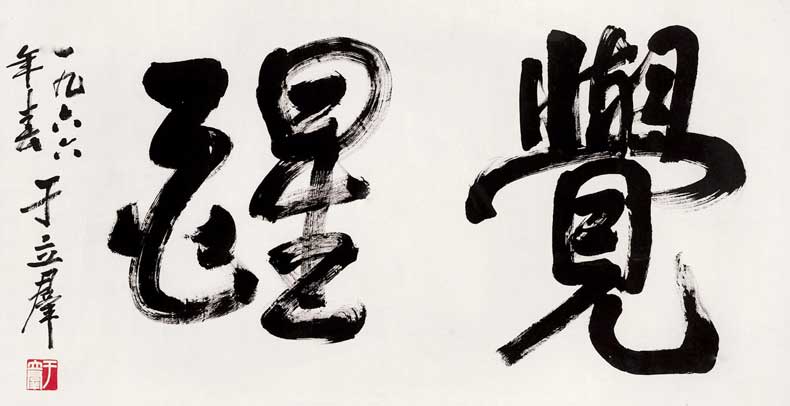 覺醒
一九六六
年春
于立羣
于立羣